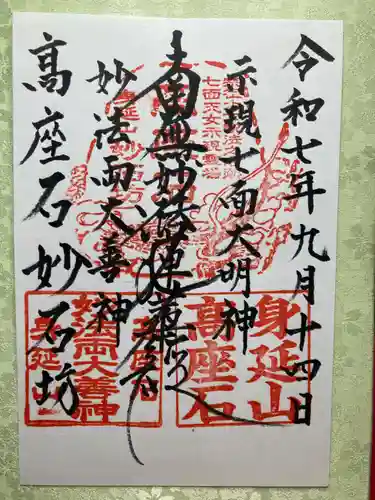 令和七年九月十四日
示現七面大明神
南無妙法蓮華経
妙法両大善神
高座石妙石坊
七面天女示現霊場
身延山
高座石
妙法両大善神